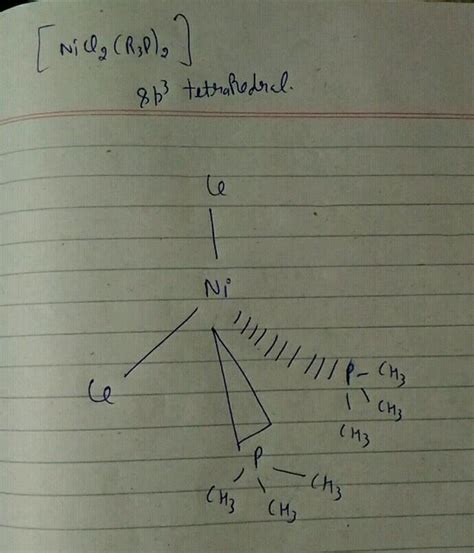 [NiCl₂(R₃P)₂]
sp³ tetrahedral.
Cl
Ni
Cl
P-CH₃
CH₃
CH₃
P
CH₃ CH₃ CH₃